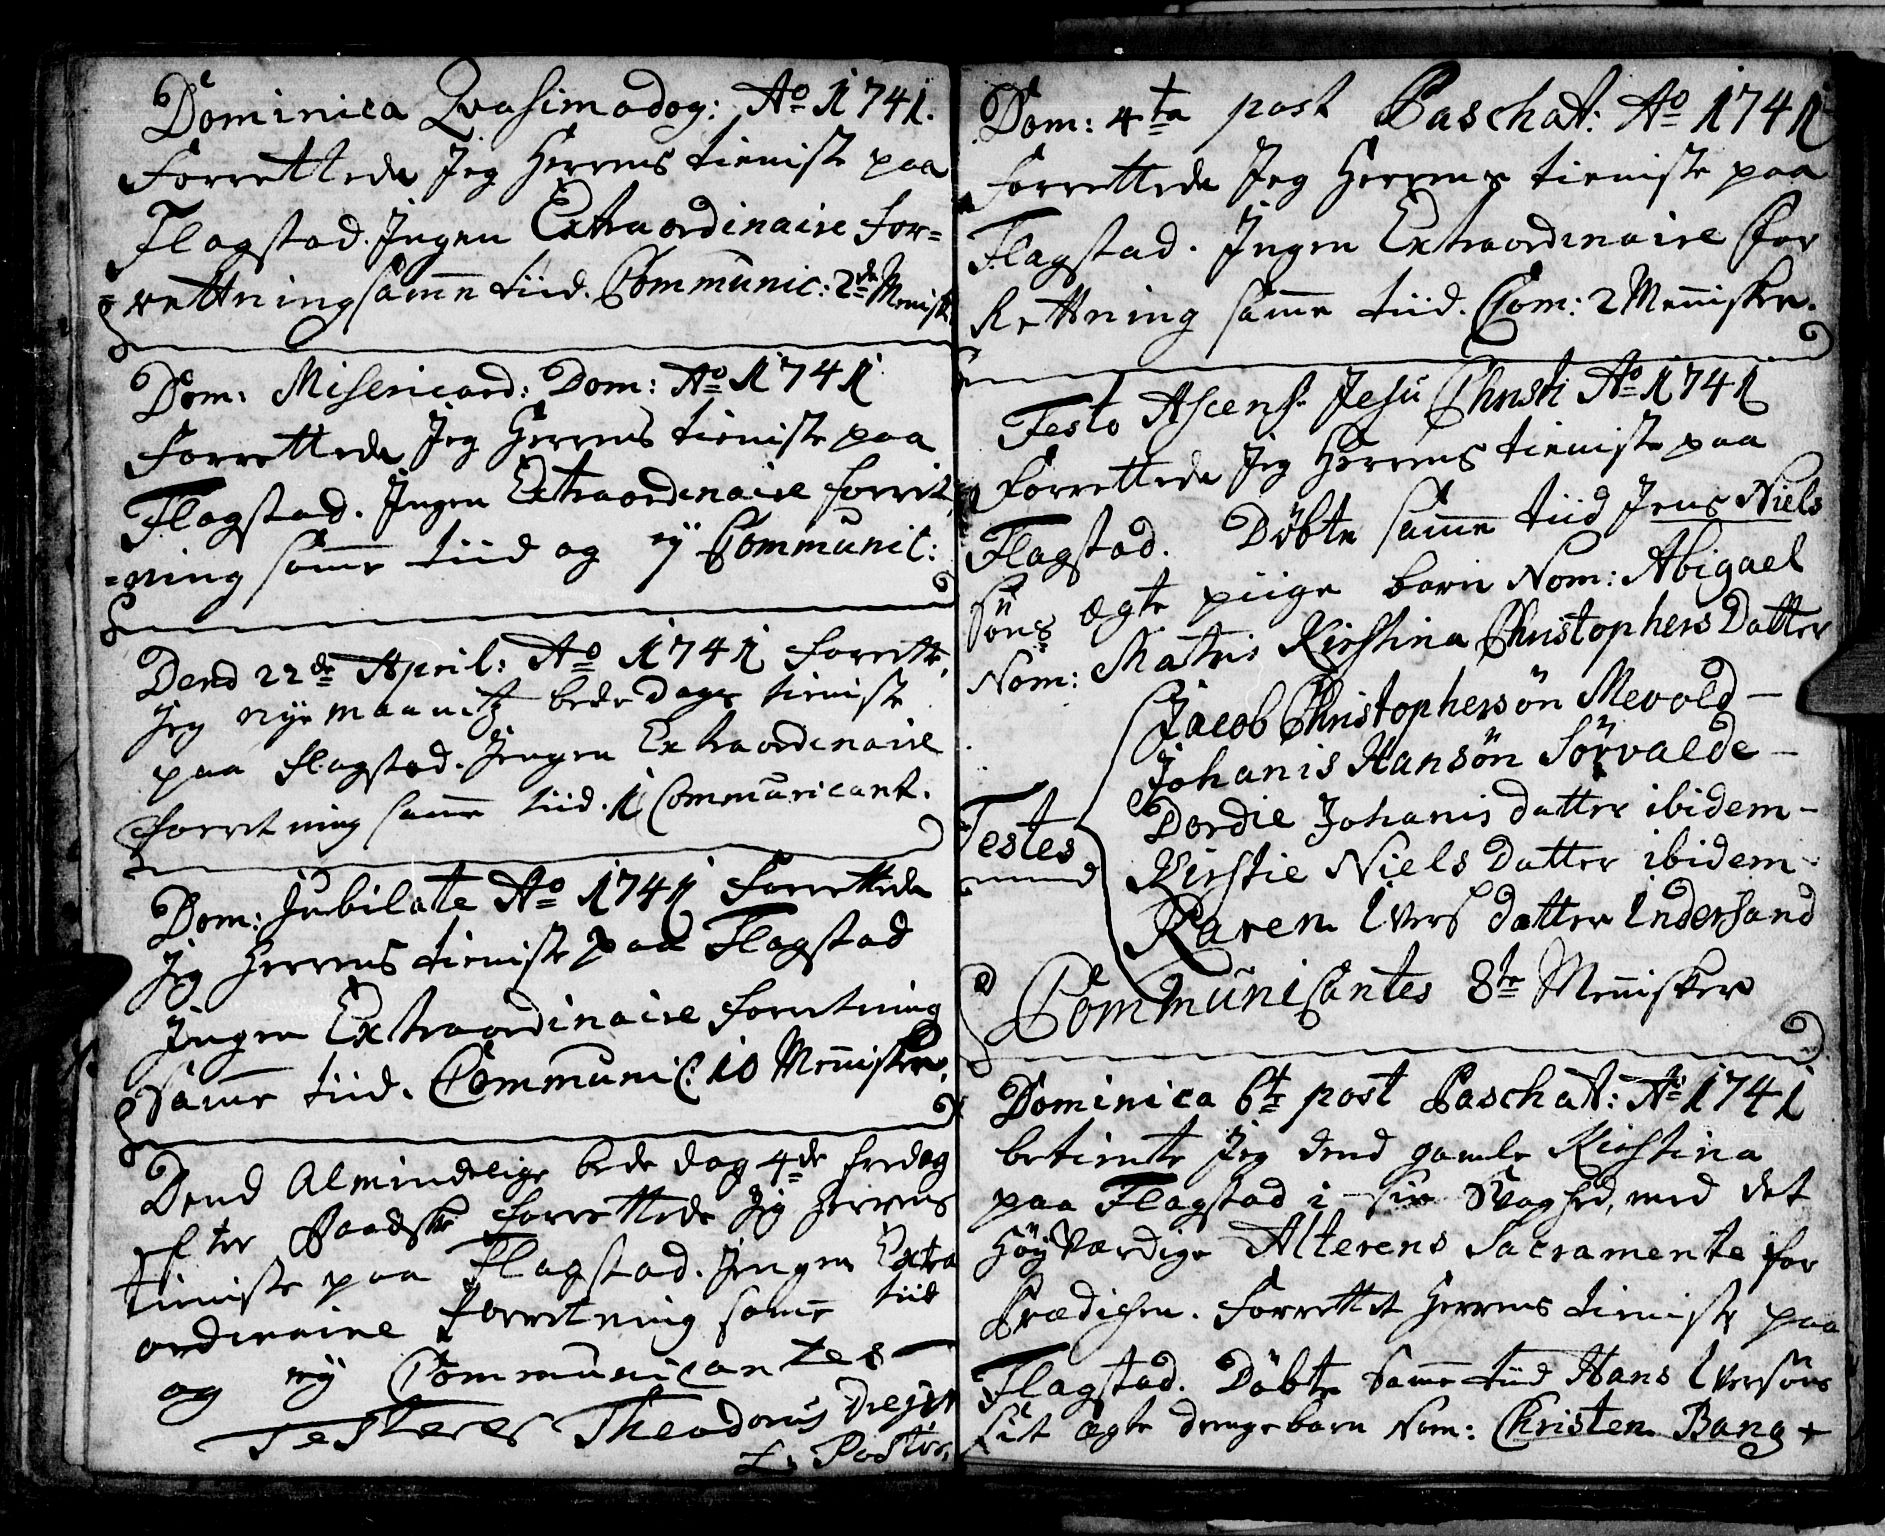 Dominica Qvasimodog: Ao 1741.
Forrettede Jeg Herrens tieniste paa
Flagstad. Ingen Extraordinaire for=
=rettning samme tiid. Communic: 2de Menisk.
Dom: Misericord: Dom: Ao 1741
Forrettede Jeg Herrens tieniste paa
Flagstad. Ingen Extraordinaire forret
=ning samme tiid og ey Communic:
Dend 22de April: Ao 1741 forrette.
Jeg nye maanitz bede Dags tieniste
paa Flagstad. Ingen Extraordinaire
forretning samme tiid. 1 Communicant.
Dom: Jubilate Ao 1741 Forrettede
Jeg Herrens tieniste paa Flagstad
Ingen Extraordinaire forretning
samme tiid. Communic: 10 Mennisker.
Dend Almindelige bede dag 4de fredag
efter Paadske forrettede Jeg Herrens
tieniste paa Flagstad. Ingen Extra
ordinaire forretning samme tiid
og ey Communicantes
Testerer Theodorus Dreyer
L. Pastor.
Dom: 4ta post Paschat: Ao 1741
Forrettede Jeg Herrens tieniste paa
Flagstad. Ingen Extraordinaire for
Rettning samme tiid. Com: 2 Mennisker.
Festo Ascens. Jesu Christi Ao 1741
Forrettede Jeg Herrens tieniste paa
Flagstad. Döbte samme tiid Jens Niels
Söns ægte piige barn Nom: Abigael
Nom: Matris Kirstina Christophers Datter
Jacob Christophersön Mevold -
Johanis Hansön Sörvalde -
Testes
Dordie Johanis datter ibidem -
Kirstie Niels Datter ibidem -
Karen Ivers datter Indersand
Communicantes 8te Mennisker
Dominica 6te post Paschat: Ao 1741
betiente Jeg dend gamle Kirstina
paa Flagstad i sin Svaghed, med det
Höyværdige Alterens Sacramente for
Prædichen. Forrettet Herrens tieniste paa
Flagstad. Döbte samme tiid Hans Iversöns
Sit ægte drengebarn Nom: Christen Bang +